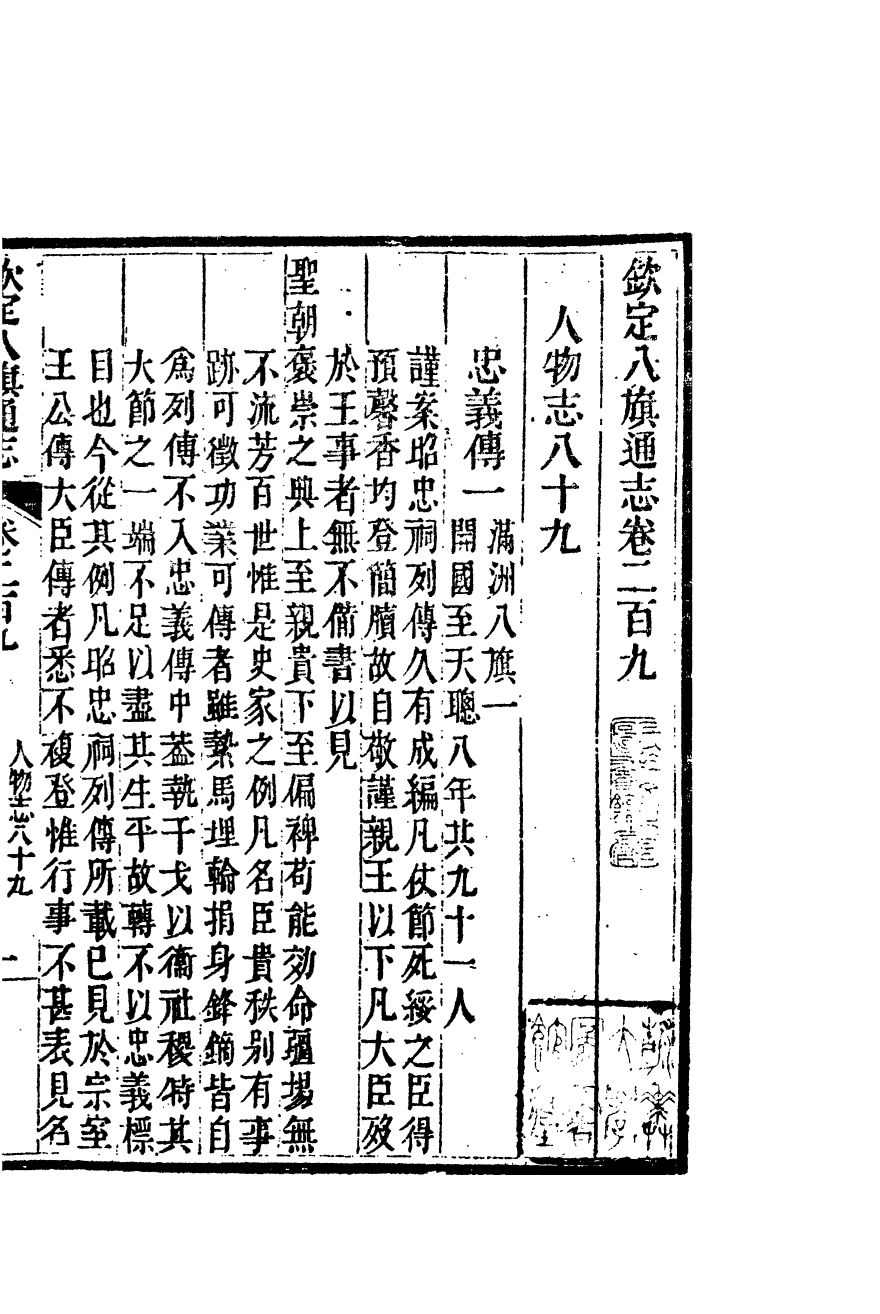 欽定八旗通志卷二百九
人物志八十九
忠義傳一
滿洲八旗一
開國至天聰八年共九十一人
謹案昭忠祠列傳久有成編凡仗節死綏之臣得
預馨香均登簡牘故自敬謹親王以下凡大臣歿
於王事者無不備書以見
聖朝褒崇之典上至親貴下至偏裨苟能効命疆場無
不流芳百世惟是史家之例凡名臣貴秩别有事
跡可徵功業可傳者雖縶馬埋輪捐身鋒鏑皆自
爲列傳不入忠義傳中葢執干戈以衞社稷特其
大節之一端不足以盡其生平故轉不以忠義標
目也今從其例凡昭忠祠列傳所載已見於宗室
王公傳大臣傳者悉不複登惟行事不甚表見名
欽定八旗通志
卷二百九
人物志八十九
一